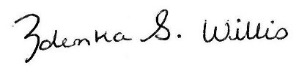 Zdenka S. Willis